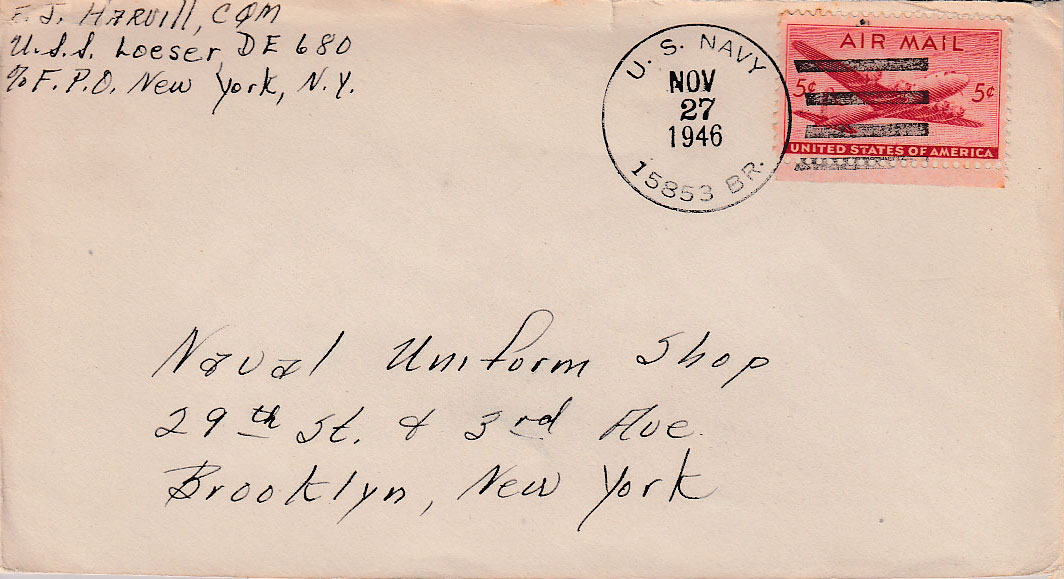 F. J. Harvill, CQM
U.S.S. Loeser, DE 680
c/o F.P.O. New York, N.Y.
U.S. NAVY
NOV
27
1946
15853 BR.
AIR MAIL
5¢ 5¢
UNITED STATES OF AMERICA
Naval Uniform Shop
29th St. & 3rd Ave.
Brooklyn, New York